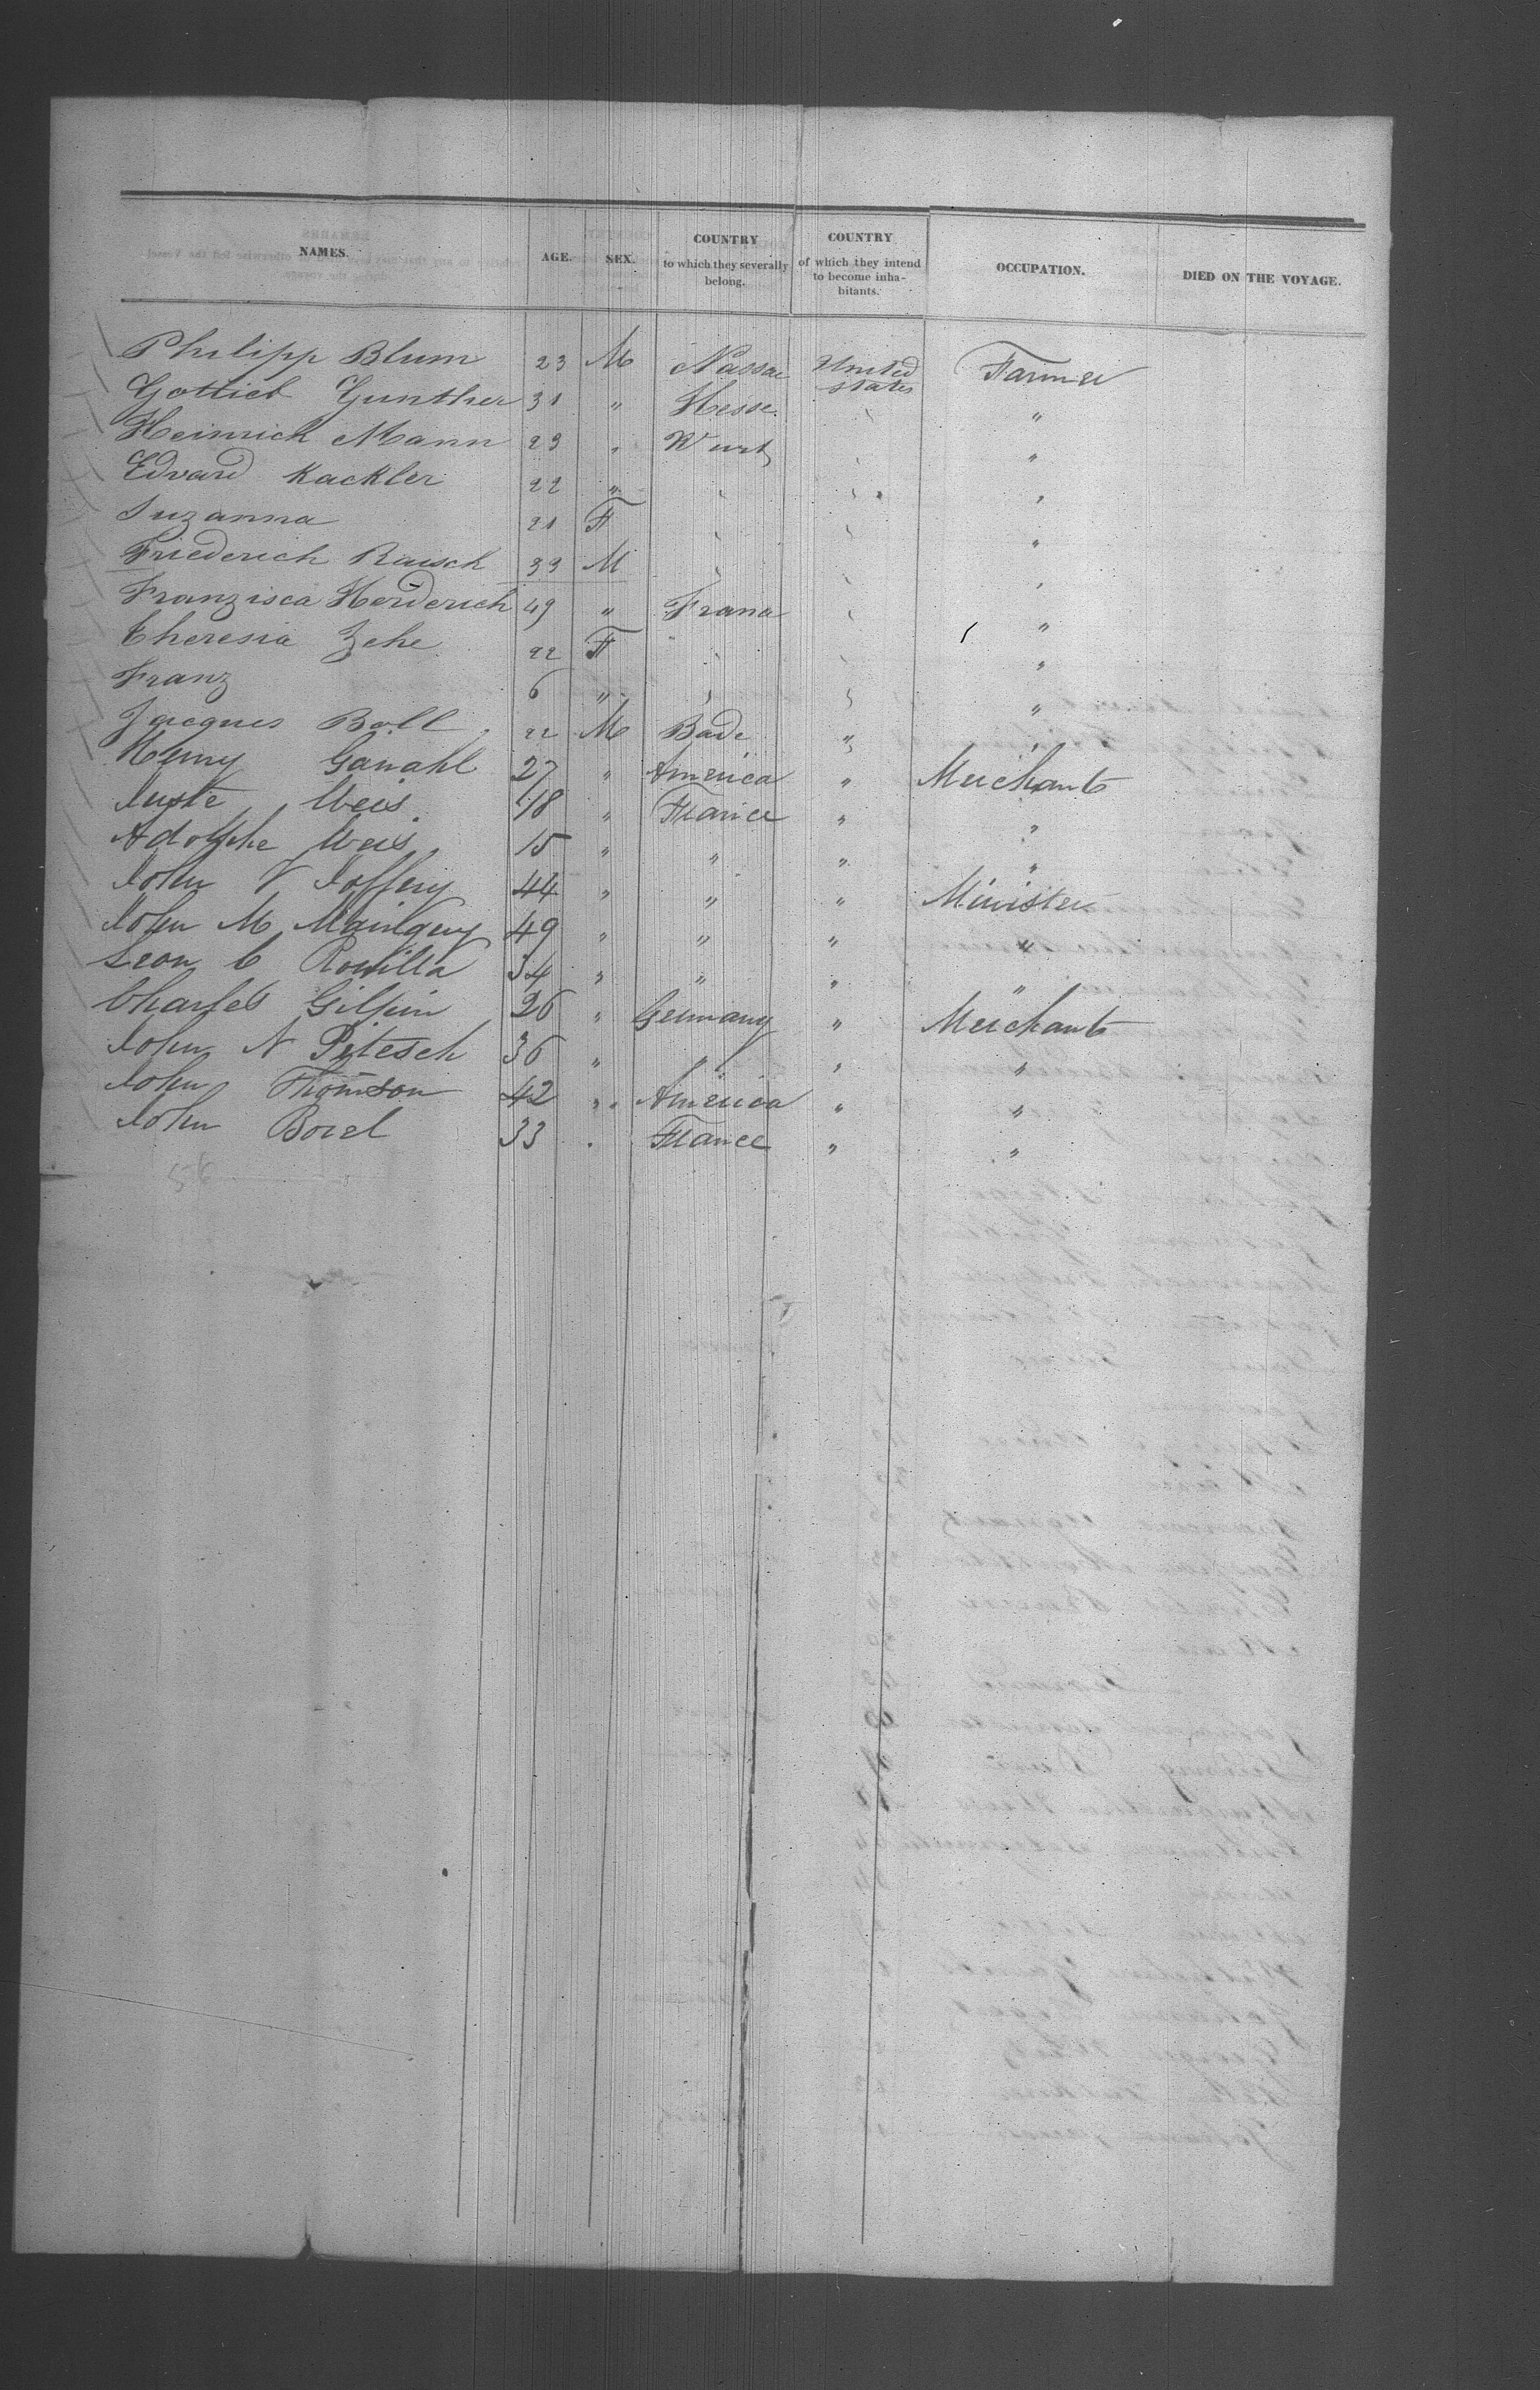 NAMES. AGE. SEX. COUNTRY to which they severally belong. COUNTRY of which they intend to become inhabitants. OCCUPATION. DIED ON THE VOYAGE.
Philipp Blum 23 M Nassau United States Farmer
Gottlieb Gunther 31 " Hesse " "
Heinrich Mann 29 " Wurt " "
Edvard Kackler 22 " " " "
Suzanna 21 F " " "
Friederich Rausch 39 M " " "
Franzisca Herderich 49 " France " "
Theresia Zehe 22 F " " "
Franz 6 " " " "
Jacques Boll 22 M Bade " "
Henry Ganahl 27 " America " Merchant
Juste Weis 18 " France " "
Adolphe Weis 15 " " " "
John V 44 " " " Minister
John M 49 " " " "
Leon C 34 " " " "
Charles Gilpin 26 " Germany " Merchant
John N Pitesch 36 " " " "
John Thomson 42 " America " "
John Borel 33 " France " "